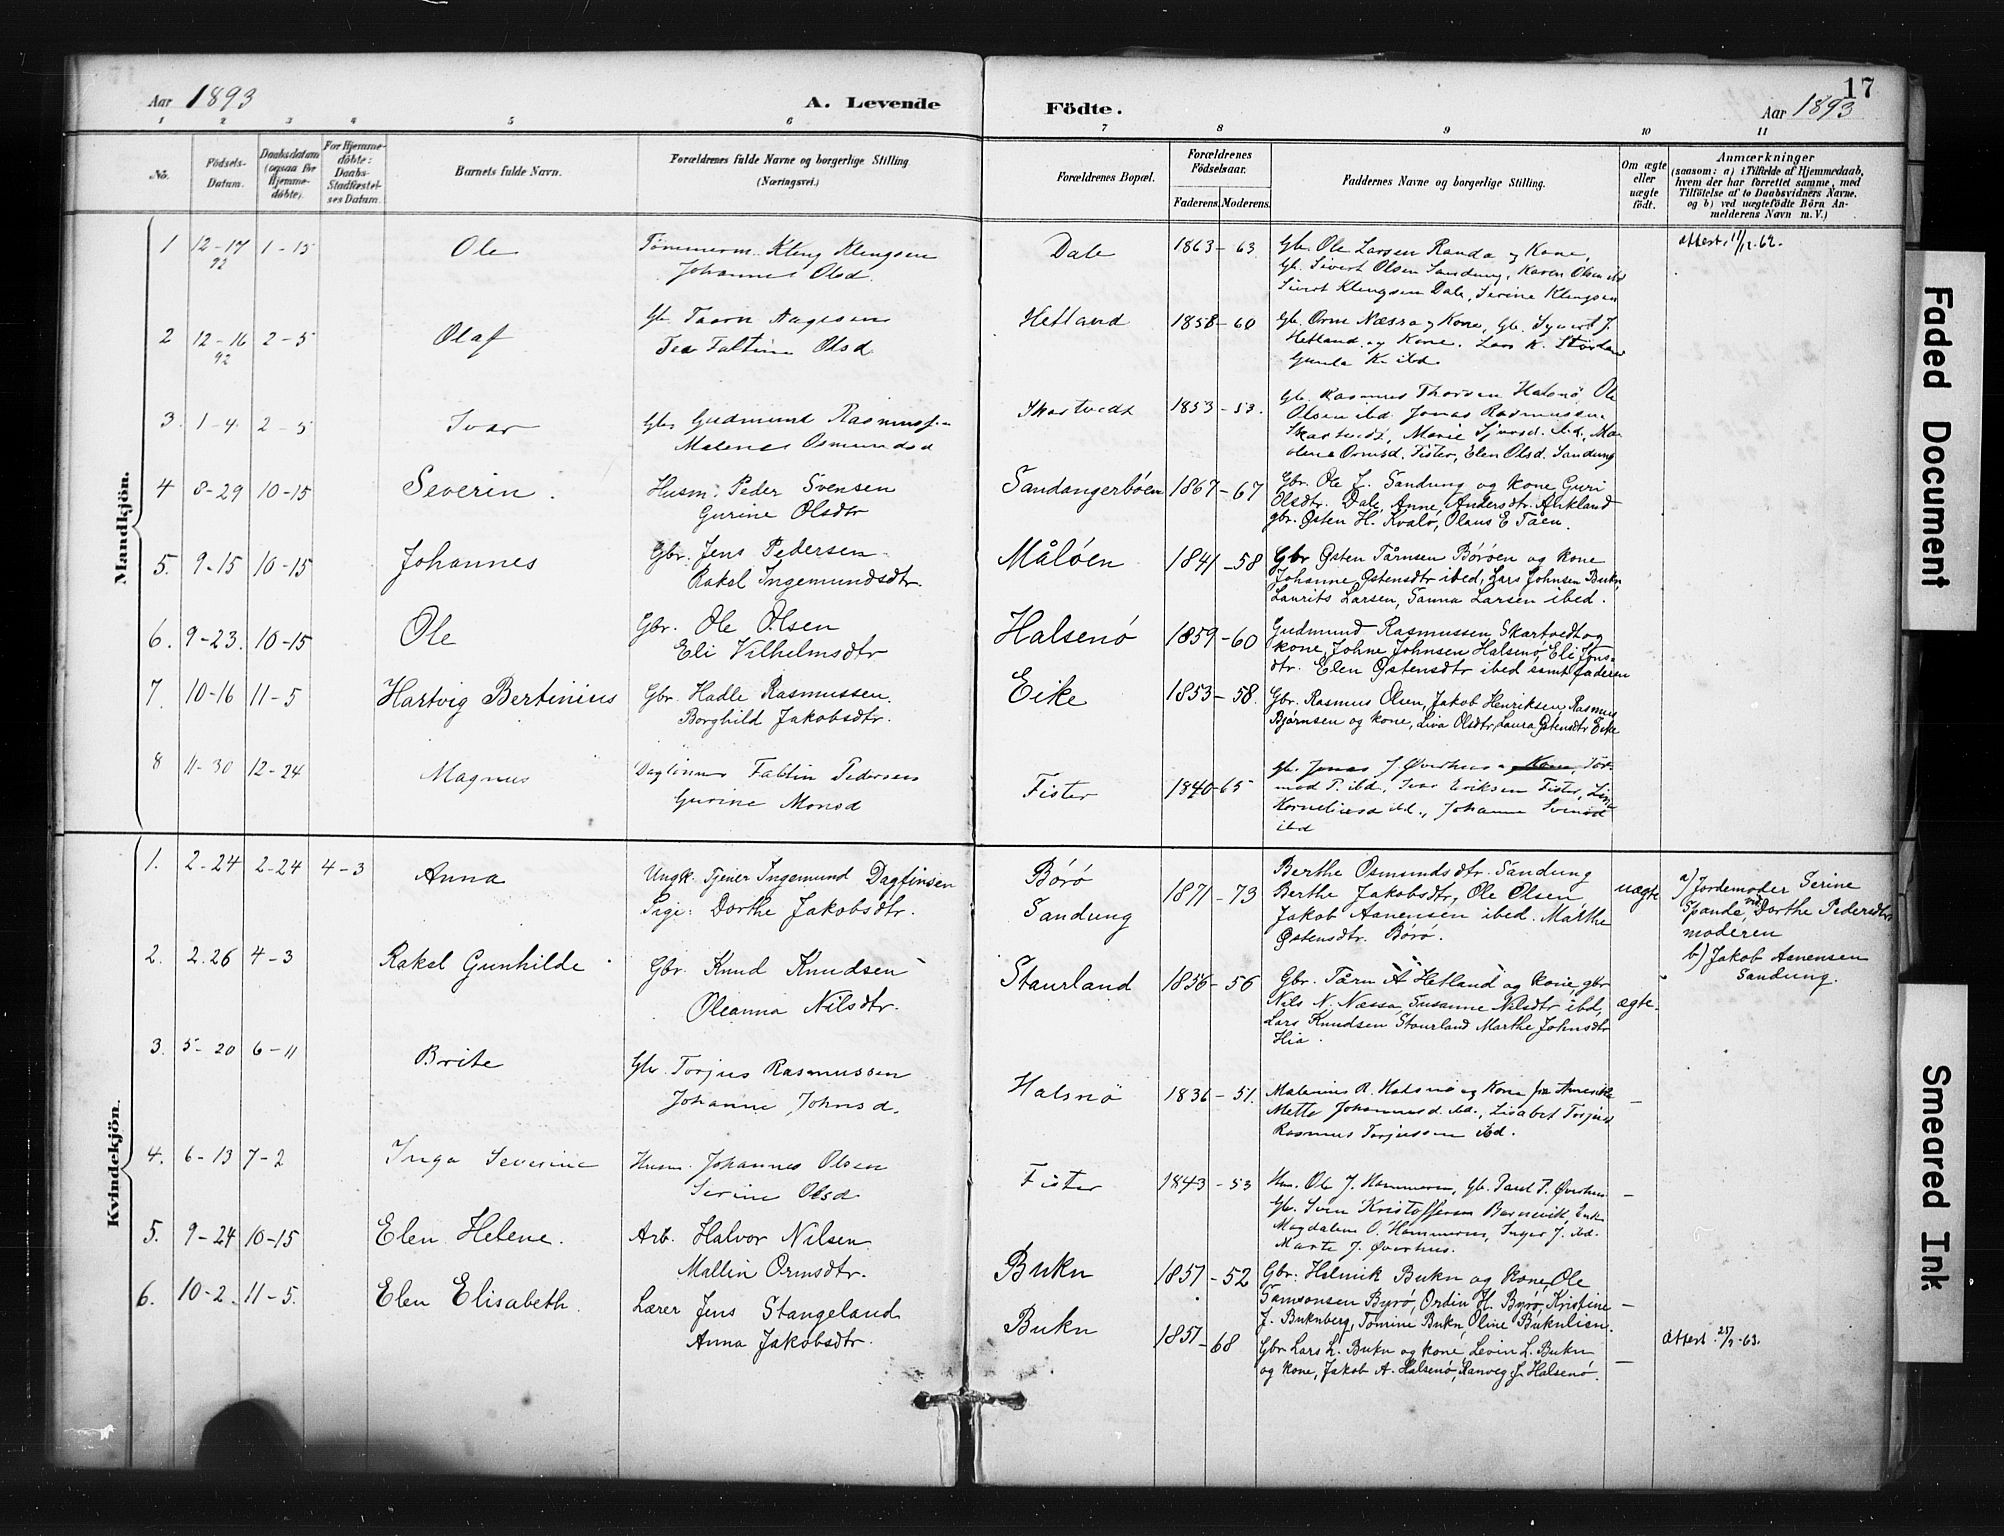 17
Aar 1893
A. Levende
Födte.
Aar 1893
1 2 3 4 5 6 7 8 9 10 11
No.
Födsels-
Datum.
Daabsdatum
(ogsaa for
Hjemme-
döbte).
For Hjemme-
döbte:
Daabs-
Stadfæstel-
ses Datum.
Barnets fulde Navn.
Forældrenes fulde Navne og borgerlige Stilling
(Næringsvei.)
Forældrenes Bopæl.
Forældrenes
Födselsaar.
Faderens. Moderens.
Faddernes Navne og borgerlige Stilling.
Om ægte
eller
uægte
födt.
Anmærkninger
(saasom: a) i Tilfælde af Hjemmedaab,
hvem der har forrettet samme, med
Tilföielse af to Daabsvidners Navne.
og b) ved uægtefödte Börn An-
melderens Navn m. V.)
Mandkjön.
1 12-17 1-15 Ole Tömmerm. Kleng Klengsen Dale 1863-63 Gbr. Ole Larsen Randa og Kone,
92 Johannes Olsd. Gb. Sivert Olsen Sandung, Karen Olsen ibd
Sivert Klengsen Dale, Serine Klengsen
Attest 11/12-62.
2 12-16 2-5 Olaf Gb. Taarn Aagesen Hetland 1858-60 Gb. Orm Næssa og Kone, Gb. Sjurt J.
92 Tea Faltine Olsd Hetland og Kone. Lars K.
Gunla K. ibd.
3. 1-4 2-5 Ivar Gbr Gudmund Rasmuss. Skartvedt 1853-53. Gb. Rasmus Thorsen Halsnö, Ole
Malene Osmundsd Olsen ibd. Jonas Rasmussen
Skartvedt, Marie Sjursd. ibd, Ma-
lene Ormsd. Fister, Elen Olsd. Sandung
4 8-29 10-15 Severin. Husm. Peder Svensen Sandangerböen 1867-67 Gbr. Ole L. Sandung og kone Guri
Gurine Olsdtr Olsdtr. Dale, Anne Andersdtr. Aukland
gbr. Østen H. Kvalö, Olaus E Tåen.
5. 9-15 10-15 Johannes Gbr. Jens Pedersen Målöen 1841-58 Gbr Østen Tårnsen Böröen og kone
Rakel Ingemundsdtr. Johanne Østensdtr ibed, Lars Johnsen Bukn,
Laurits Larsen, Sanna Larsen ibed.
6. 9-23. 10-15 Ole Gbr. Ole Olsen Halsenö 1859-60 Gudmund Rasmussen Skartvedt og
Eli Vilhelmsdtr kone, Johne Johnsen Halsenö, Eli Jons-
dtr. Elen Østensdtr ibed samt faderen
7. 10-16 11-5 Hartvig Bertinius Gbr. Hadle Rasmussen. Eike 1853-58. Gbr. Rasmus Olsen, Jakob Henriksen, Rasmus
Borghild Jakobsdtr. Björnsen og kone, Liva Olsdtr, Laura Østensdtr Eike
8 11-30 12-24 Magnus Daglönner Faltin Pedersen Fister 1840-65 Gb. Jonas J. Øverhus og Kone, Tor-
Gurine Monsd mod P. ibd, Ivar Eriksen Fister, Lina
Korneliusd ibd., Johanne Svensd
ibd
Kvindekjön.
1. 2-24 2-24 4-3 Anna Ungk. Tjener Ingemund Dagfinsen Börö 1871-73 Berthe Osmundsdtr. Sandung uægte
Pige: Dorthe Jakobsdtr. Sandung Berthe Jakobsdtr, Ole Olsen,
Jakob Aanensen ibed. Marthe
Østensdtr. Börö.
a) Jordemoder Serine
Spande, Dorthe Pedersdtr
moderen
b) Jakob Aanensen
Sandung.
2. 2.26 4-3 Rakel Gunhilde Gbr. Knud Knudsen Staurland 1856-56 Gbr. Tårn A Hetland og kone, gbr
Oleanna Nilsdtr. Nils N. Næssa, Susanne Nilsdtr ibd, ægte.
Lars Knudsen Staurland Marthe Johnsdtr
Hia.
3. 5-20 6-11 Brite Gbr. Torjus Rasmussen Halsnö 1836-51. Malenius R. Halsnö og Kone fra Amerika
Johanne Johnsd. Mette Johannesd. ibd., Lisabet Torjusd
Rasmus Torjussen ibd.
4. 6-13 7-2 Inga Severine Husm. Johannes Olsen Fister 1843-53 Hm. Ole J. Hammeren, Gb. Paul P. Øverhus
Serine Olsd Gb. Sven Kristoffersen Barnevik, Enke
Magdalene O. Hammeren, Inger J. ibd.
Marte J. Øverhus.
5. 9-24 10-15 Elen Helene. Arb. Halvor Nilsen Bukn 1851-52 Gbr. Helmik Bukn og kone, Ole
Mallin Ormsdtr. Samsonsen Byrö, Ordin H. Byrö, Kristine
J. Buknberg, Tomine Bukn Oline Buknlien.
6. 10-2. 11-5. Elen Elisabeth. Lærer Jens Stangeland Bukn 1851-68 Gbr Lars L. Bukn og kone Levin L. Bukn
Anna Jakobsdtr. og kone, Jakob A. Halsenö, Ranveig J. Halsenö.
Attest 25/9-63.
Faded Document
Smeared Ink